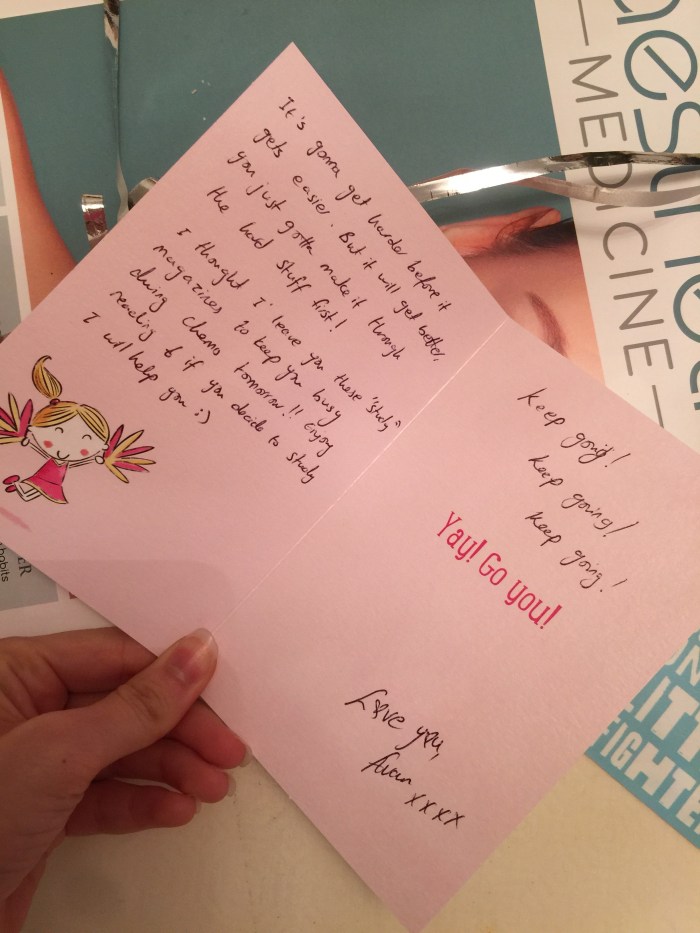 It's gonna get harder before it
gets easier. But it will get better,
you just gotta make it through
the hard stuff first!
I thought I'leave you these 'study'
magazines to keep you busy
during chemo tomorrow!! Enjoy
reading & if you decide to study
I will help you :)
Keep going!
Keep going!
Keep going!
Yay! Go you!
Love you,
xxxx
MEDICINE
habits
ER
FIGHTE